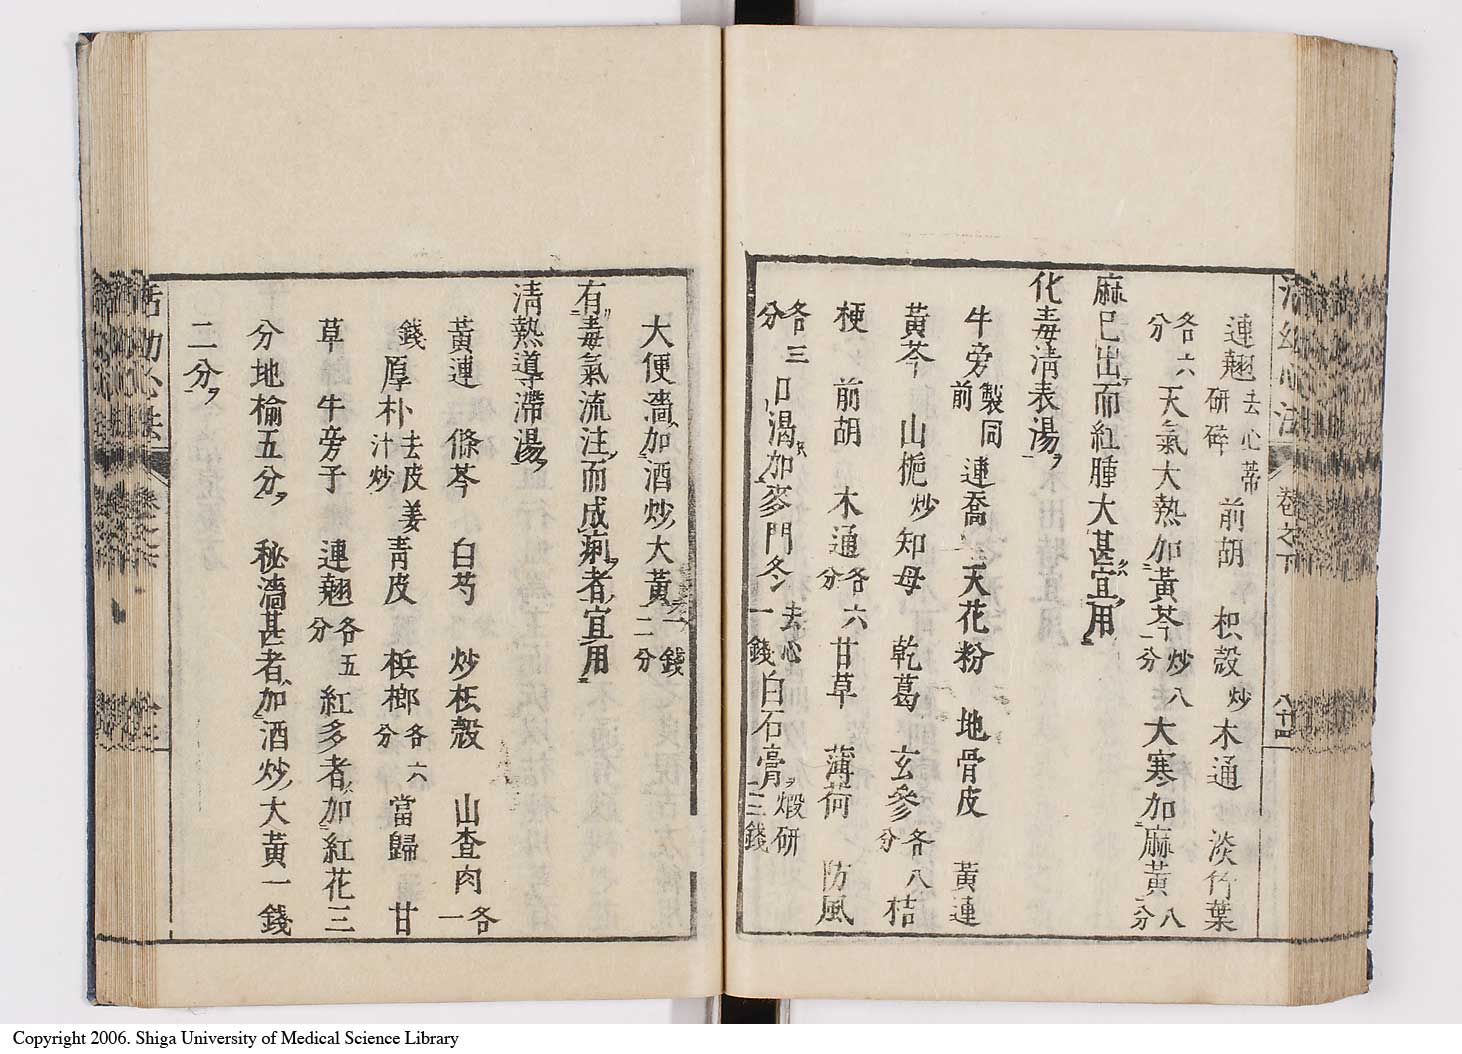 連翹去心蒂研碎 前胡 枳殼炒木通 淡竹葉
各六分天氣大熱加黃芩炒八分大寒加麻黃八分
麻已出而紅腫大甚宜用
化毒淸表湯
牛旁製同前 連喬 天花粉 地骨皮 黃連
黃芩 山梔炒知母 乾葛 玄參各八分桔
梗 前胡 木通各六分甘草 薄荷 防風
各三分 口渴加麥門冬去心一錢白石膏煅研三錢
卷之下
大便濇加酒炒大黃一錢二分
有毒氣流注而成痢者宜用
淸熱導滯湯
黃連 條芩 白芍 炒枳殼 山查肉各一
錢厚朴去皮姜汁炒靑皮 梹榔各六分 當歸 甘
草 牛旁子 連翹各五分紅多者加紅花三
分地榆五分 秘濇甚者加酒炒大黃一錢
二分
活幼心法
Copyright 2006. Shiga University of Medical Science Library